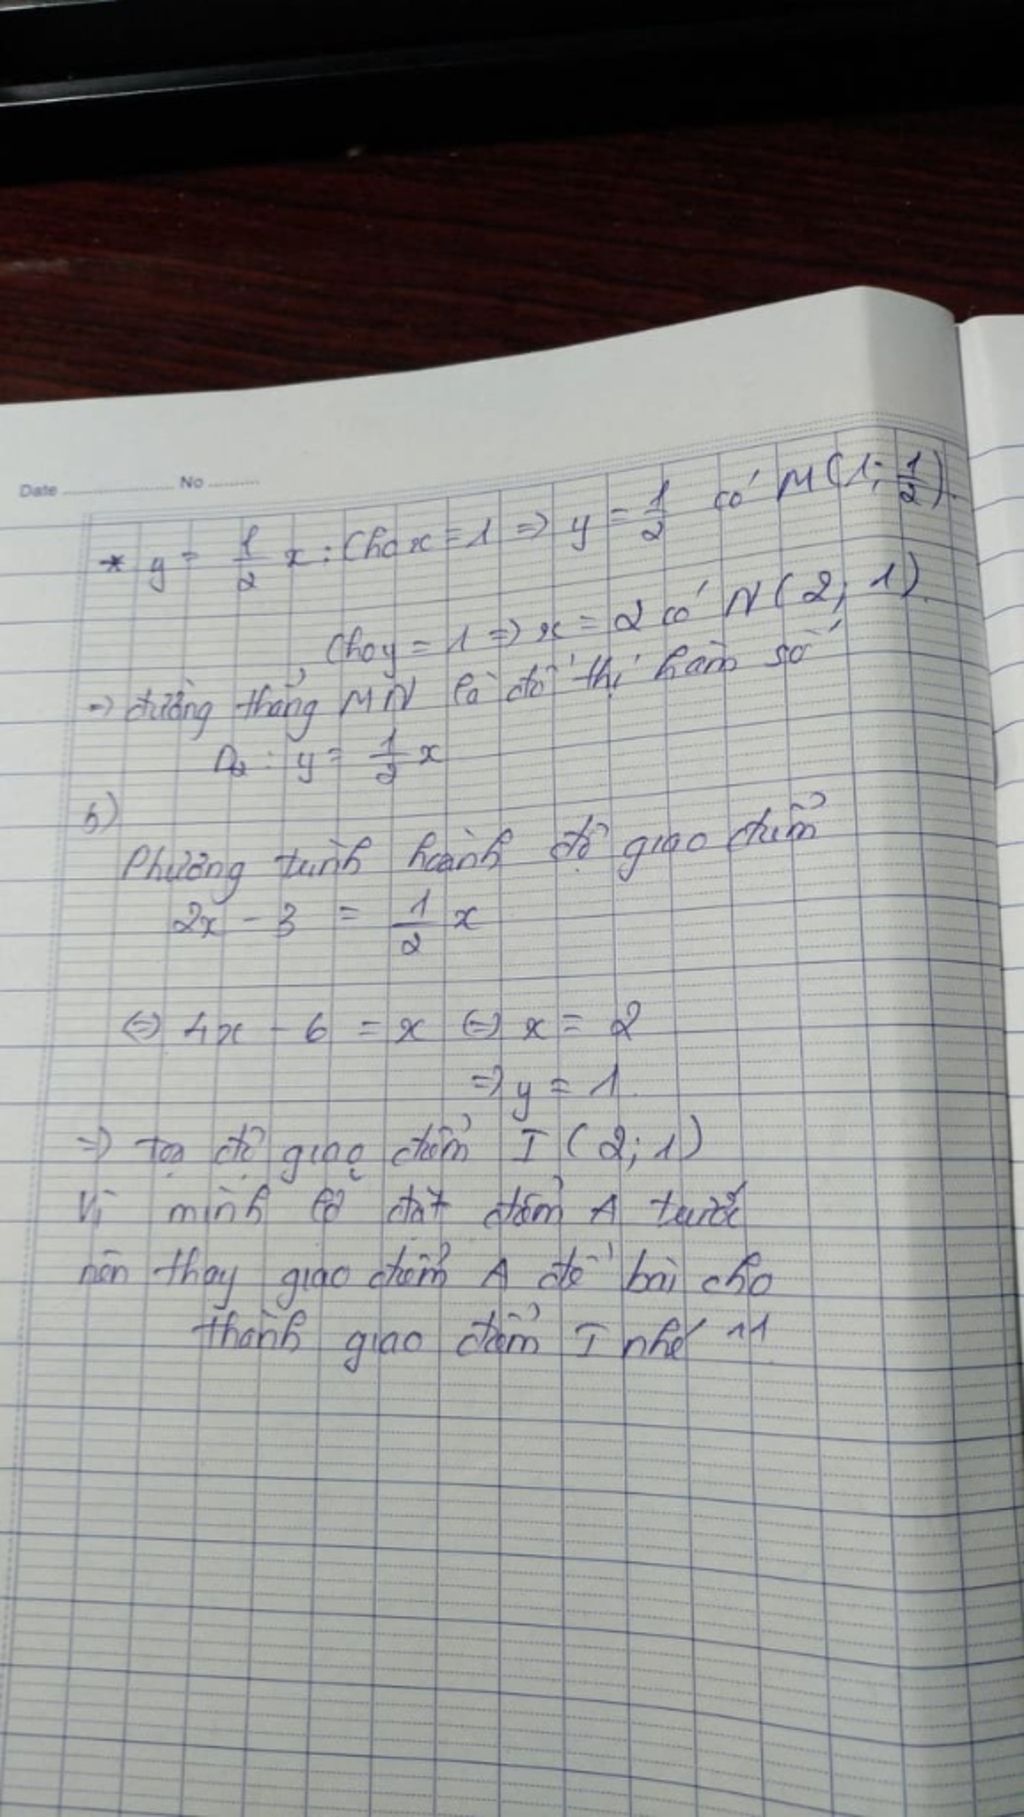 Date ........ No ........
* y = 1/2 x : Cho x = 1 => y = 1/2 có M(1; 1/2).
Cho y = 1 => x = 2 có N(2; 1).
=> đường thẳng MN là đồ thị hàm số
D2 : y = 1/2 x
b)
Phương trình hoành độ giao điểm
2x - 3 = 1/2 x
<=> 4x - 6 = x <=> x = 2
=> y = 1.
=> Toạ độ giao điểm I (2; 1)
Vì mình lỡ đặt điểm A trước
nên thay giao điểm A đề bài cho
thành giao điểm I nhé ^^